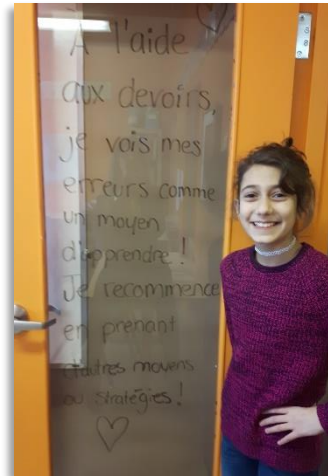 À l'aide
aux devoirs,
je vois mes
erreurs comme
un moyen
d'apprendre !
Je recommence
en prenant
d'autres moyens
ou stratégies !